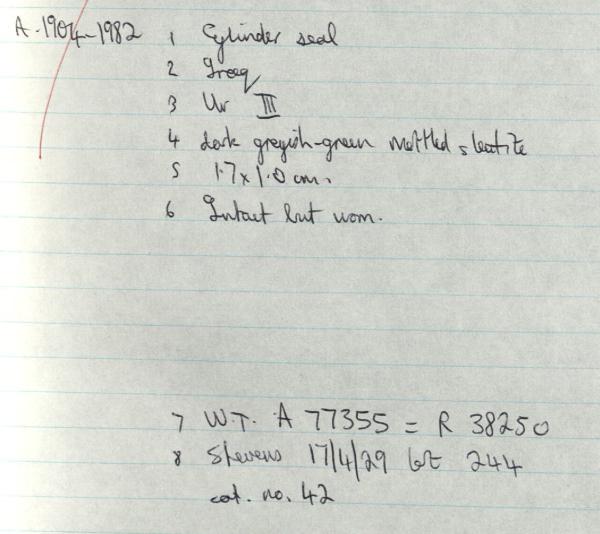 A.1904-1982 1 Cylinder seal
2 Iraq
3 Ur III
4 dark greyish-green mottled steatite
5 1.7 x 1.0 cm.
6 Intact but worn.
7 W.T. A 77355 = R 38250
8 Stevens 17/4/29 lot 244
cat. no. 42